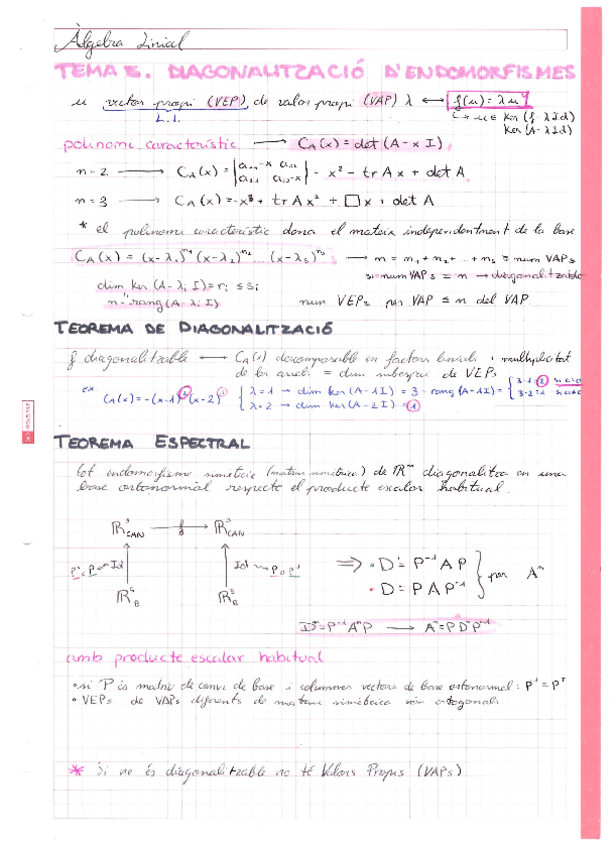 Àlgebra Linial
TEMA 5. DIAGONALITZACIÓ D'ENDOMORFISMES
u vector propi (VEP) de valor propi (VAP) λ ⟷ f(u) = λu
L.I. ↪ u ∈ Ker (f - λId)
Ker (A - λId)
polinomi característic ⟶ C_A(x) = det(A - xI)
n=2 ⟶ C_A(x) = |a₁₁-x a₁₂ a₂₁ a₂₂-x| = x² - trA x + det A
n=3 ⟶ C_A(x) = -x³ + trA x² + □x + det A
* el polinomi característic dona el mateix independentment de la base
C_A(x) = (x-λ₁)ⁿ¹ (x-λ₂)ⁿ² ... (x-λₛ)ⁿˢ ⟶ n = n₁ + n₂ + ... + nₛ = num VAPs
si num VAPs = n → diagonalitzable
dim Ker (A-λᵢ I) = rᵢ ≤ sᵢ
n - rang (A-λᵢ I) num VEPs per VAP ≤ n del VAP
TEOREMA DE DIAGONALITZACIÓ
f diagonalitzable ⟷ C_A(x) descomposable en factors linials i multiplicitat
de les arrels = dim subespai de VEPs
ex C_A(x) = -(x-1)² (x-2)¹ { λ=1 → dim Ker(A-1I) = 3 - rang(A-1I) = { 3-1=2
λ=2 → dim Ker(A-2I) = 1 3-2=1
TEOREMA ESPECTRAL
tot endomorfisme simètric (matriu simètrica) de ℝⁿ diagonalitza en una
base ortonormal respecte el producte escalar habitual.
ℝ³CAN —f→ ℝ³CAN
Id Id
⟹ • D = P⁻¹AP
• D = PAP⁻¹ } per Aⁿ
ℝ³B ℝ³B
Dⁿ = P⁻¹AⁿP ⟶ Aⁿ = PDⁿP⁻¹
amb producte escalar habitual
• si P és matriu de canvi de base i columnes vectors de base ortonormal: P⁻¹ = Pᵀ
• VEPs de VAPs diferents de matriu simètrica són ortogonals
* Si no és diagonalitzable no té Valors Propis (VAPs)
WUOLAH